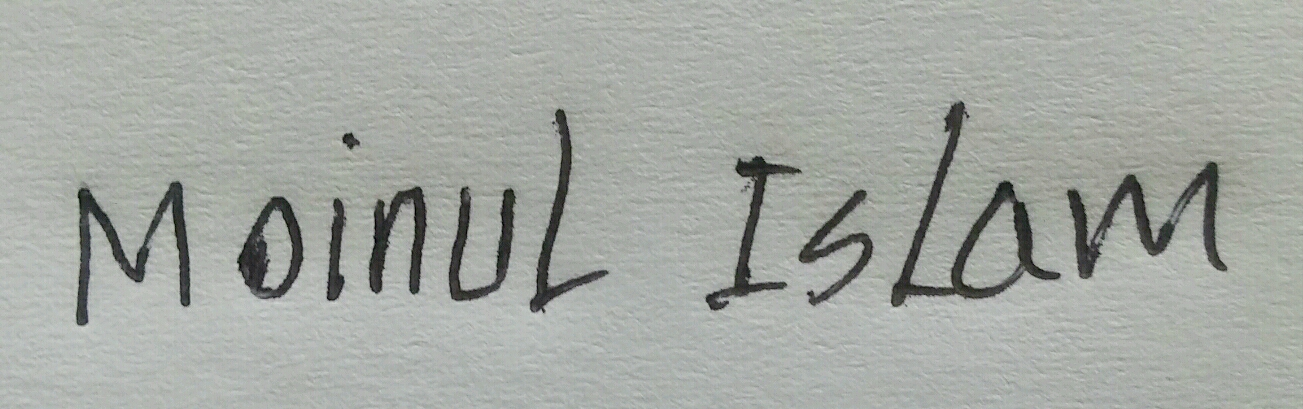 Moinul Islam